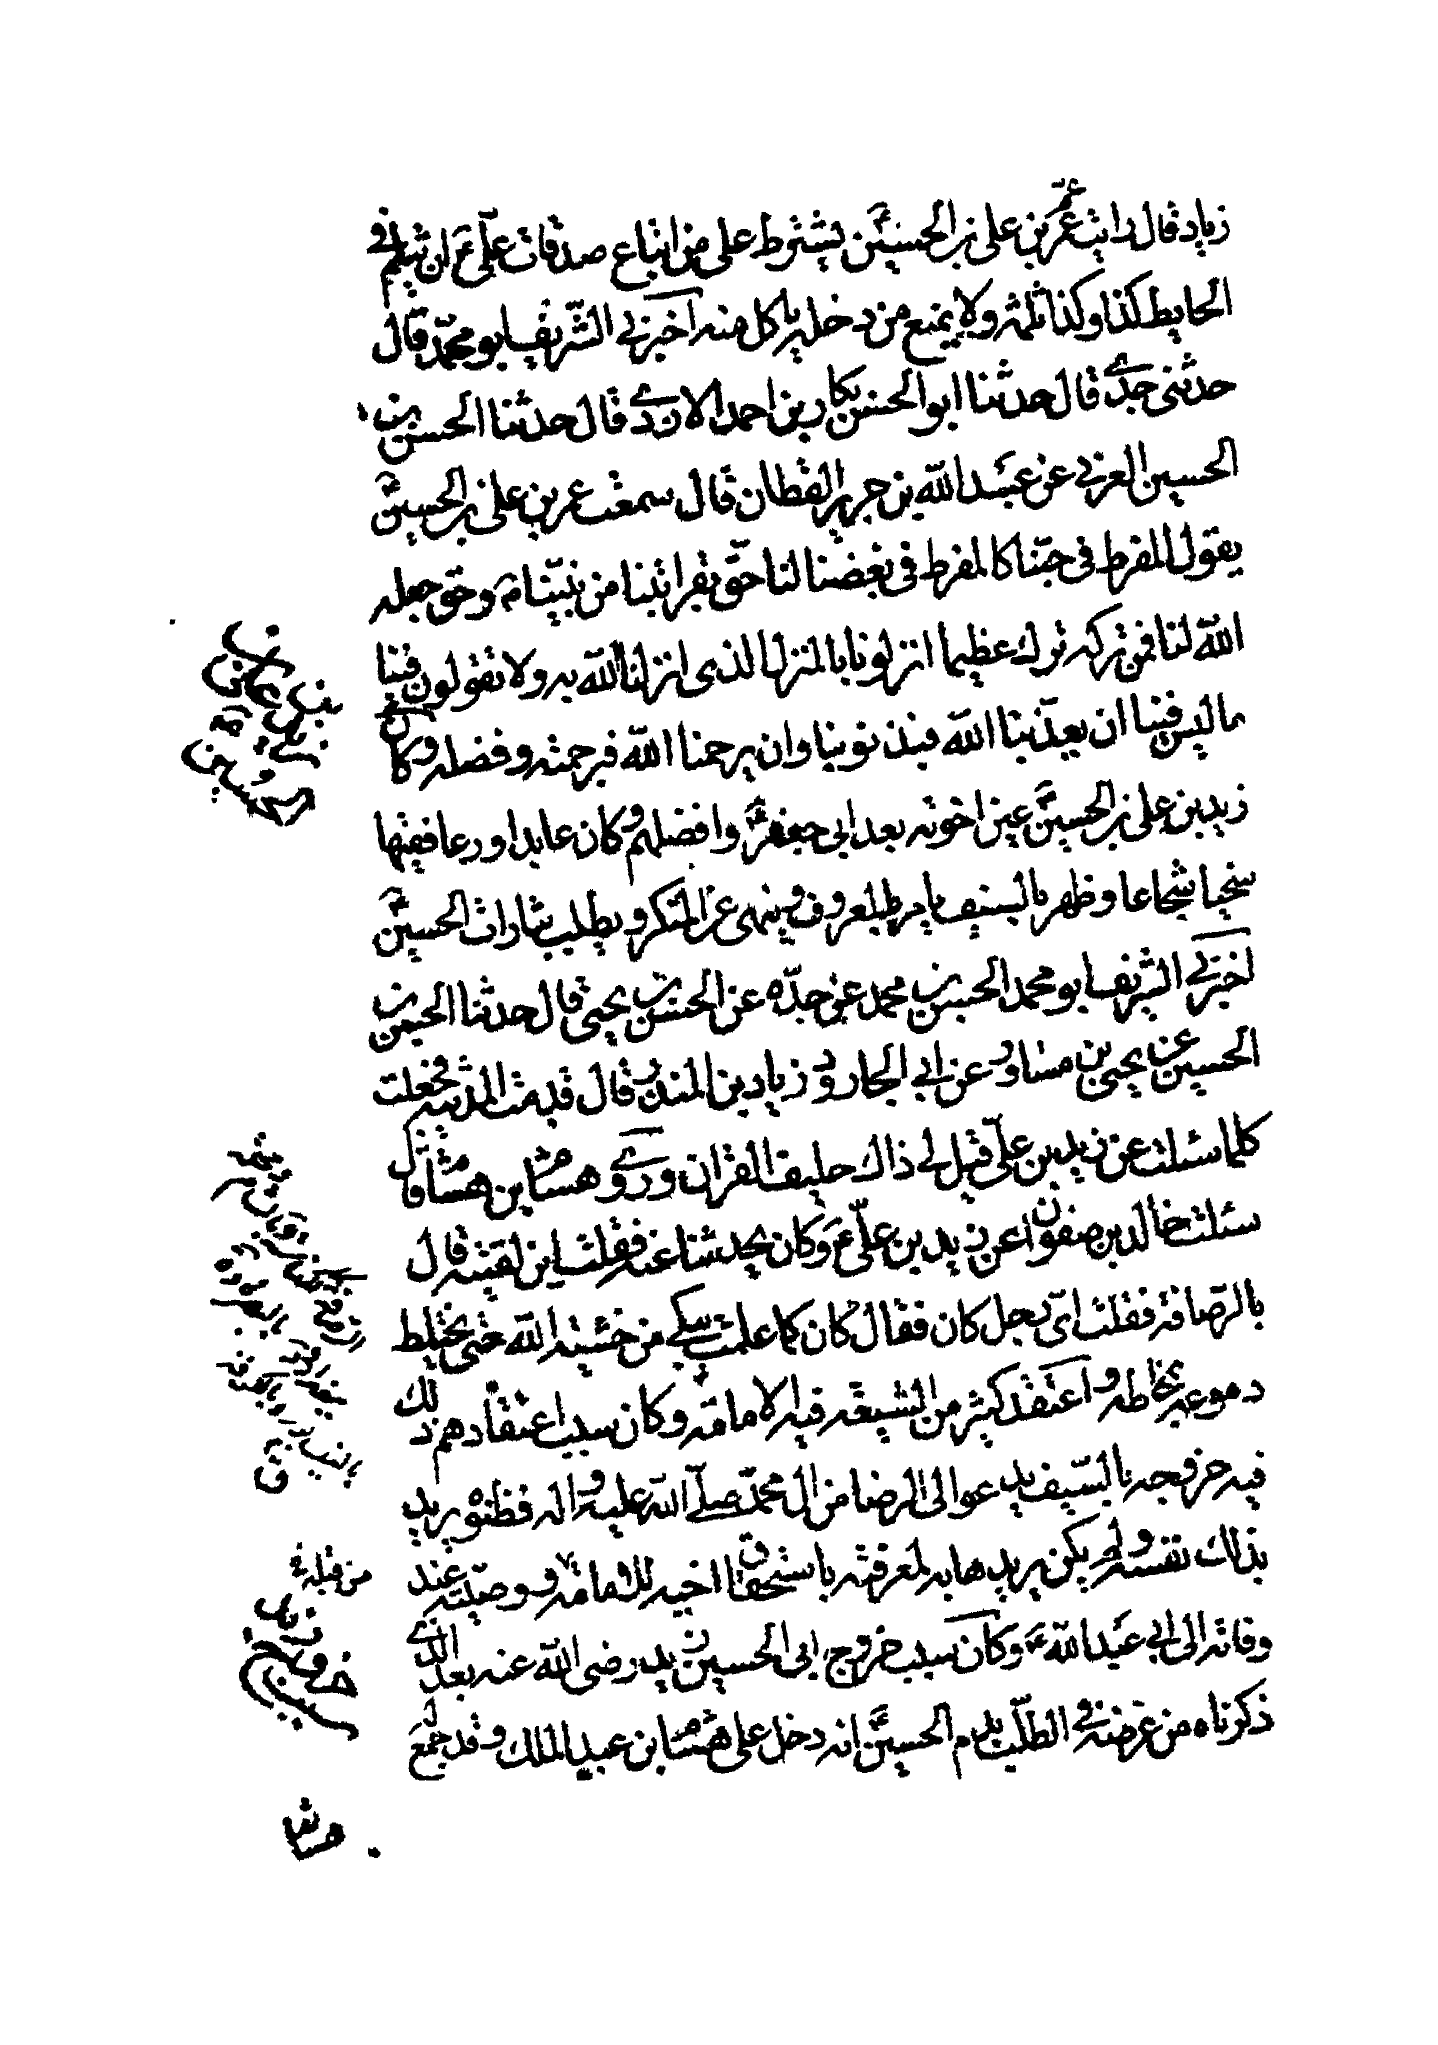 زياد قال رايت عمر بن علي بن الحسين ع يشترط على من ابتاع صدقات علي ع ان يثلم في
الحايط كذا وكذا ثلمة ولا يمنع من دخله ياكل منه اخبرني الشريف ابو محمد قال
حدثني جدي قال حدثنا ابو الحسن بكار بن احمد الازدي قال حدثنا الحسن بن
الحسين العرني عن عبيد الله بن جرير القطان قال سمعت عمر بن علي بن الحسين ع
يقول المفرط في حبنا كالمفرط في بغضنا لنا حق بقرابتنا من نبينا م وحق جعله
الله لنا فمن تركه ترك عظيما انزلونا بالمنزل الذي انزلنا الله به ولا تقولون فينا
ما ليس فينا ان يعذبنا الله فبذنوبنا وان يرحمنا الله فبرحمته وفضله وكان
زيد بن علي بن الحسين ع عين اخوته بعد ابي جعفر ع وافضلهم وكان عابدا ورعا فقيها
سخيا شجاعا وظهر بالسيف يامر بالمعروف وينهى عن المنكر ويطلب بثارات الحسين ع
اخبرني الشريف ابو محمد الحسن بن محمد عن جده عن الحسن بن يحيى قال حدثنا الحسن بن
الحسين عن يحيى بن مساور عن ابي الجارود زياد بن المنذر قال قدمت المدينة فجعلت
كلما سئلت عن زيد بن علي قيل لي ذاك حليف القران وروى هشام بن هشام قال
سئلت خالد بن صفوان عن زيد بن علي ع وكان يحدثنا عنه فقلت اين لقيته قال
بالرصافة فقلت اي رجل كان فقال كان كما علمت يبكي من خشية الله حتى يختلط
دموعه بمخاطه واعتقد كثير من الشيعة فيه الامامة وكان سبب اعتقادهم ذلك
فيه خروجه بالسيف يدعو الى الرضا من ال محمد صلى الله عليه واله فظنوه يريد
بذلك نفسه ولم يكن يريدها به لمعرفته باستحقاق اخيه للامامة من قبله ووصيته عند
وفاته الى ابي عبد الله ع وكان سبب خروج ابي الحسين زيد رضي الله عنه بعد الذي
ذكرناه من غرضه في الطلب بدم الحسين ع انه دخل على هشام بن عبد الملك وقد جمع له
زيد بن علي بن
الحسين
من قبله
سبب خروج
زيد
هشام